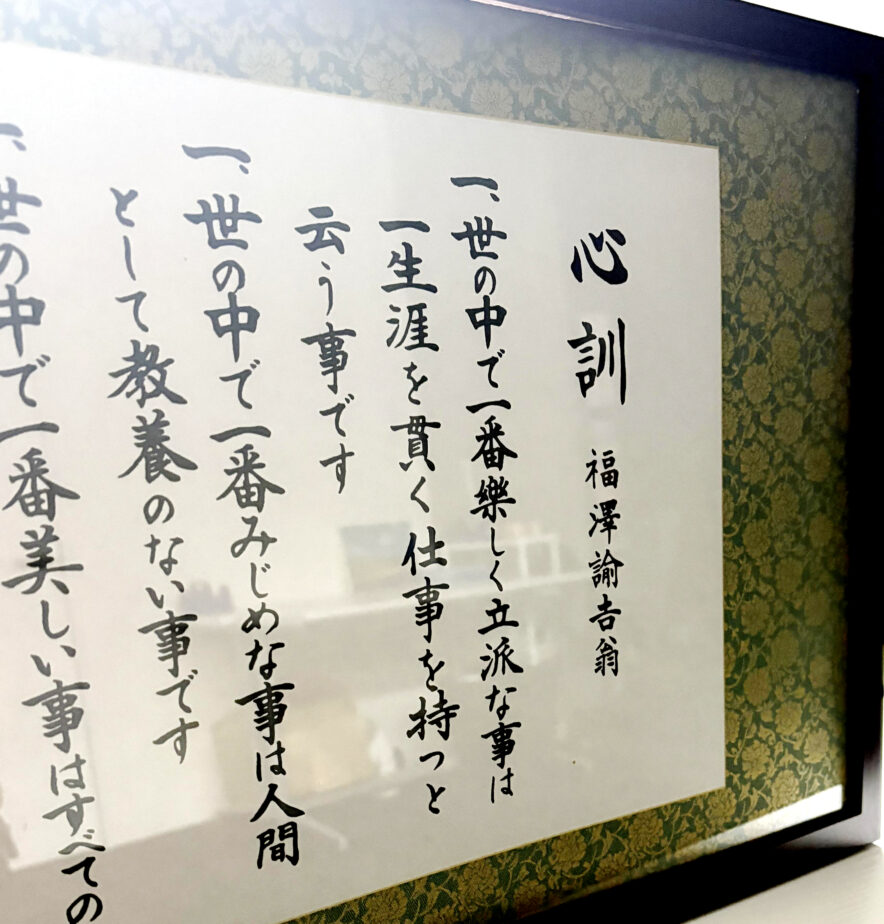 心訓
福澤諭吉翁
一、世の中で一番樂しく立派な事は
一生涯を貫く仕事を持つと
云う事です
一、世の中で一番みじめな事は人間
として教養のない事です
一、世の中で一番美しい事はすべての